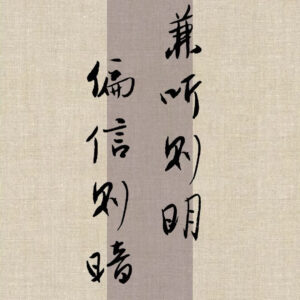 兼听则明
偏信则暗